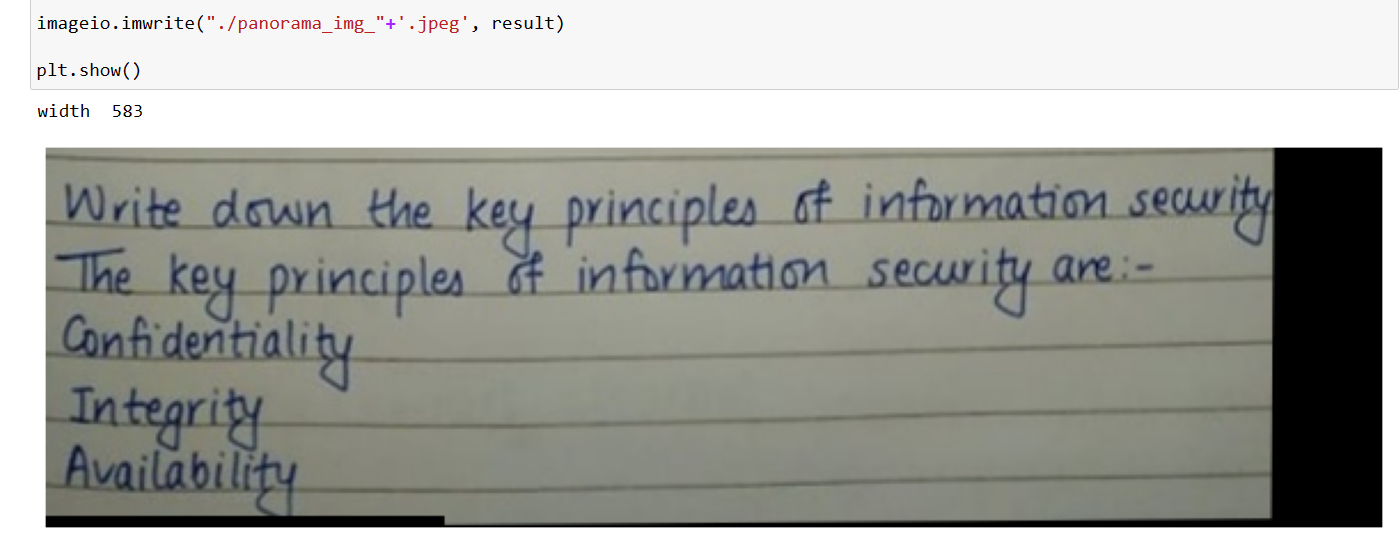 imageio.imwrite("./panorama_img_"+'.jpeg', result)
plt.show()
width  583
Write down the key principles of information security
The key principles of information security are:-
Confidentiality
Integrity
Availability